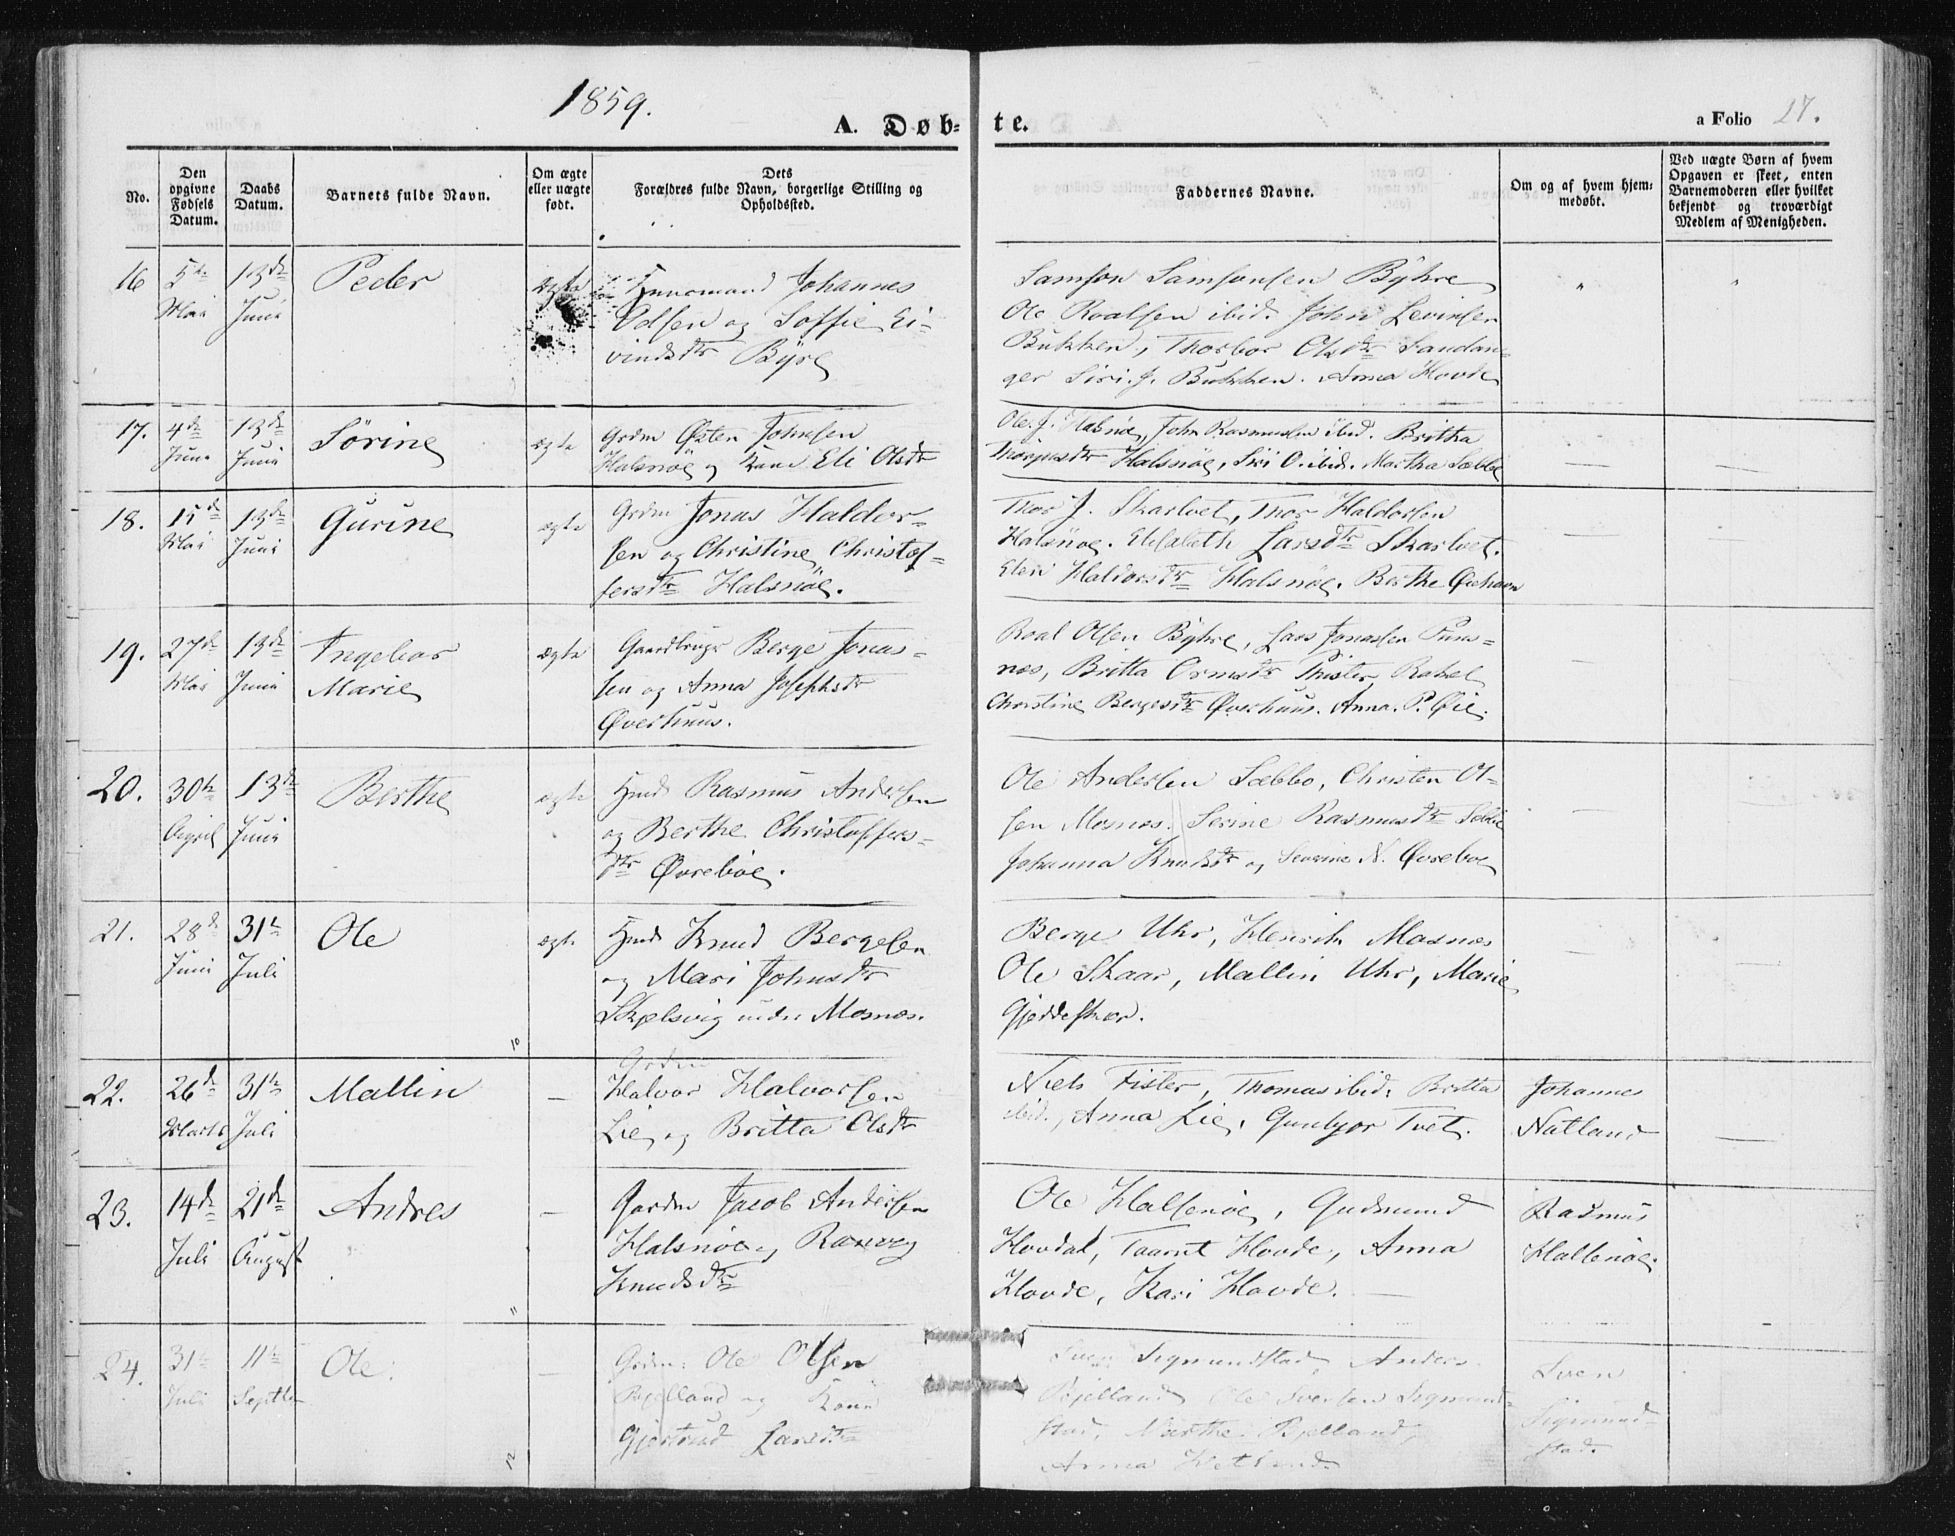 1859.
A. Døb-
te.
a Folio 27.
No.
Den opgivne Fødsels Datum.
Daabs Datum.
Barnets fulde Navn.
Om ægte eller uægte født.
Dets Forældres fulde Navn, borgerlige Stilling og Opholdssted.
Faddernes Navne.
Om og af hvem hjem-
medøbt.
Ved uægte Børn af hvem Opgaven er skeet, enten Barnemoderen eller hvilket bekjendt og troværdigt Medlem af Menigheden.
16
5te
Mai
13de
Juni
Peder
ægte
Huusmand Johannes
Odsen og Soffie Ei-
vindsdtr Byre
Samson Samsonsen Byhre
Ole Roalsen ibid. John Levinsen
Bukken, Thorbor Olsdtr Sandan-
ger Siri J. Bukken. Anna Hovde
"
"
17.
4de
Juni
13de
Juni
Sørine
ægte
Grdm Østen Johnsen
Halsnøe og Kone Eli Olsdtr
Ole J. Halsnøe, John Rasmussen ibid. Britha
Halsnøe, Siri O. ibid. Martha Sæbbe
18.
15de
Mai
13de
Juni
Gurine
ægte
Grdm Jonas Haldor-
sen og Christine Christof-
fersdtr Halsnøe.
Thor J. Skartvet, Thor Haldorsen
Halsnøe. Elisabeth Larsdtr Skartvet.
Elen Haldorsdtr Halsnøe. Berthe
19.
27de
Mai
13de
Juni
Ingebor
Marie
ægte
Gaardbrugr Berge Jonas-
sen og Anna Josephsdtr
Øverhuus.
Roal Olsen Byhre, Lars Jonassen Puns-
nes, Britta Ormsdtr Fister, Rakel
Christine Bergesdtr Øverhuus. Anna P. Øie.
20.
30te
April
13de
Juni
Berthe
ægte
Hmd Rasmus Andersen
og Berthe Christoffers-
dtr Øvrebøe.
Ole Andersen Sæbbø, Christen Ol-
sen Mosnes. Serine Rasmusdtr
Johanna Knudsdtr og Severine N. Øvrebøe
21.
28de
Juni
31te
Juli
Ole
ægte
Hmd Knud Bergesen
og Mari Johnsdtr
Skjelsvig under Mosnes.
Berge Uhr, Henrik Mosnes
Ole Skaar, Mallin Uhr, Marie
Gjeddeskær.
10
22.
26de
Marts
31te
Juli
Mallin
Grdm
Halvor Halvorsen
Lie og Britta Olsdtr
Niels Fister, Thomas ibid. Britta
ibid., Anna Lie, Gunbjør Tvet.
Johannes
Natland
23.
14de
Juli
21de
August
Andres
Gardm Jacob Andersen
Halsnøe og Ranveg
Knudsdtr
Ole Halsenøe, Gudmund
Hovdal, Taarnt Hovde, Anna
Hovde, Kari Hovde.
Rasmus
Halsenøe.
"
24.
31te
Juli
11te
Septbr
Ole.
Grdm. Ole Olsen
Bjelland og Kone
Gjertrud Larsdtr
Sven Sigmundstad, Anders
Bjelland, Ole Svensen Sigmund-
stad, Marthe Bjelland,
Anna Hetland.
Sven
Sigmund-
stad.
12